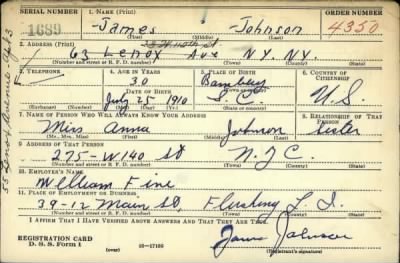 SERIAL NUMBER 1689
1. NAME (Print) ORDER NUMBER
James Johnson 4350
(First) (Middle) (Last)
2. ADDRESS (Print)
63 Lenox Ave N.Y. N.Y.
(Number and street or R. F. D. number) (Town) (County) (State)
3. TELEPHONE 4. AGE IN YEARS 5. PLACE OF BIRTH 6. COUNTRY OF CITIZENSHIP
30 Bamberg
DATE OF BIRTH (Town or county)
July 25 1910 S.C. U.S.
(Exchange) (Number) (Mo.) (Day) (Yr.) (State or country)
7. NAME OF PERSON WHO WILL ALWAYS KNOW YOUR ADDRESS 8. RELATIONSHIP OF THAT PERSON
Miss Anna Johnson Sister
(Mr., Mrs., Miss) (First) (Middle) (Last)
9. ADDRESS OF THAT PERSON
275-W140 St N.Y.C.
(Number and street or R. F. D. number) (Town) (County) (State)
10. EMPLOYER'S NAME
William Fine
11. PLACE OF EMPLOYMENT OR BUSINESS
39-12 Main St, Flushing L.I.
(Number and street or R. F. D. number) (Town) (County) (State)
I AFFIRM THAT I HAVE VERIFIED ABOVE ANSWERS AND THAT THEY ARE TRUE.
REGISTRATION CARD
D. S. S. Form 1 16-17105
James Johnson
(Registrant's signature)